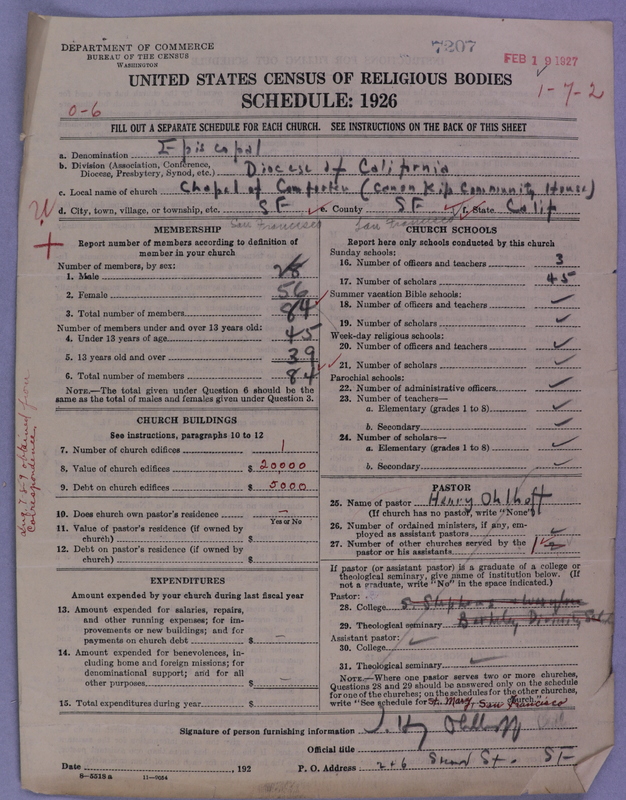 DEPARTMENT OF COMMERCE
BUREAU OF THE CENSUS
WASHINGTON
7207
FEB 19 1927
UNITED STATES CENSUS OF RELIGIOUS BODIES
SCHEDULE: 1926
0-6
1-7-2
FILL OUT A SEPARATE SCHEDULE FOR EACH CHURCH. SEE INSTRUCTIONS ON THE BACK OF THIS SHEET
a. Denomination Episcopal
b. Division (Association, Conference, Diocese, Presbytery, Synod, etc.) Diocese of California
c. Local name of church Chapel of Comforter (Canon Kip Community House)
d. City, town, village, or township, etc. SF e. County SF f. State Calif
San Francisco San Francisco
MEMBERSHIP
Report number of members according to definition of
member in your church
Number of members, by sex:
1. Male 28
2. Female 56
3. Total number of members 84
Number of members under and over 13 years old:
4. Under 13 years of age 45
5. 13 years old and over 39
6. Total number of members 84
NOTE.—The total given under Question 6 should be the
same as the total of males and females given under Question 3.
CHURCH BUILDINGS
See instructions, paragraphs 10 to 12
7. Number of church edifices 1
8. Value of church edifices $ 20000
9. Debt on church edifices $ 5000
10. Does church own pastor's residence? —
Yes or No
11. Value of pastor's residence (if owned by
church) $
12. Debt on pastor's residence (if owned by
church) $
Inq. 7, 8 & 9 obtained from
correspondence.
EXPENDITURES
Amount expended by your church during last fiscal year
13. Amount expended for salaries, repairs,
and other running expenses; for im-
provements or new buildings; and for
payments on church debt $ —
14. Amount expended for benevolences, in-
cluding home and foreign missions; for
denominational support; and for all
other purposes $ —
15. Total expenditures during year $
CHURCH SCHOOLS
Report here only schools conducted by this church
Sunday schools:
16. Number of officers and teachers 3
17. Number of scholars 45
Summer vacation Bible schools:
18. Number of officers and teachers ✓
19. Number of scholars ✓
Week-day religious schools:
20. Number of officers and teachers ✓
21. Number of scholars ✓
Parochial schools:
22. Number of administrative officers ✓
23. Number of teachers—
a. Elementary (grades 1 to 8) ✓
b. Secondary ✓
24. Number of scholars—
a. Elementary (grades 1 to 8) ✓
b. Secondary ✓
PASTOR
25. Name of pastor Henry Ohlhoff
(If church has no pastor, write "None")
26. Number of ordained ministers, if any, em-
ployed as assistant pastors ✓
27. Number of other churches served by the
pastor or his assistants 1
If pastor (or assistant pastor) is a graduate of a college or
theological seminary, give name of institution below. (If
not a graduate, write "No" in the space indicated.)
Pastor:
28. College S. Stephens
29. Theological seminary Berkeley Divinity
Assistant pastor:
30. College ✓
31. Theological seminary ✓
NOTE.—Where one pastor serves two or more churches,
Questions 28 and 29 should be answered only on the schedule
for one of the churches; on the schedules for the other churches,
write "See schedule for St. Mary, San Francisco church."
Signature of person furnishing information Ohlhoff
Official title
Date , 192
P. O. Address 246 Second St. SF
8—5519 a 11—9054